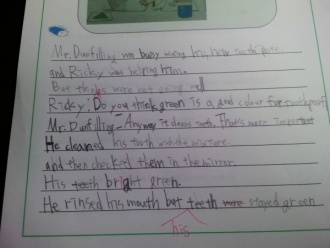 Mr. Dunfilling was busy making his new toothpaste.
and Ricky was helping him.
But things were not going well
Ricky: Do you think green is a good colour for toothpaste?
Mr. Dunfilling - Anyway it cleans teeth. That's more important
He cleaned his teeth with the mixture.
and then checked them in the mirror.
His teeth bright green.
He rinsed his mouth but teeth were stayed green
his